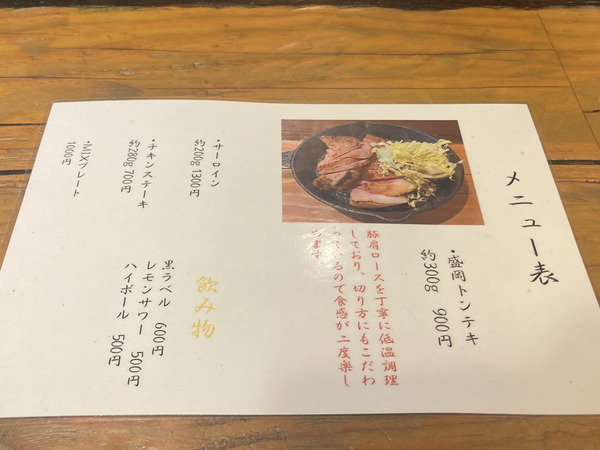 メニュー表
・盛岡トンテキ
約300g 900円
豚肩ロースを丁寧に低温調理
しており、切り方にもこだわ
っているので食感が二度楽し
めます
・サーロイン
約200g 1300円
・チキンステーキ
約280g 700円
・MIXプレート
1000円
飲み物
黒ラベル 600円
レモンサワー 500円
ハイボール 500円